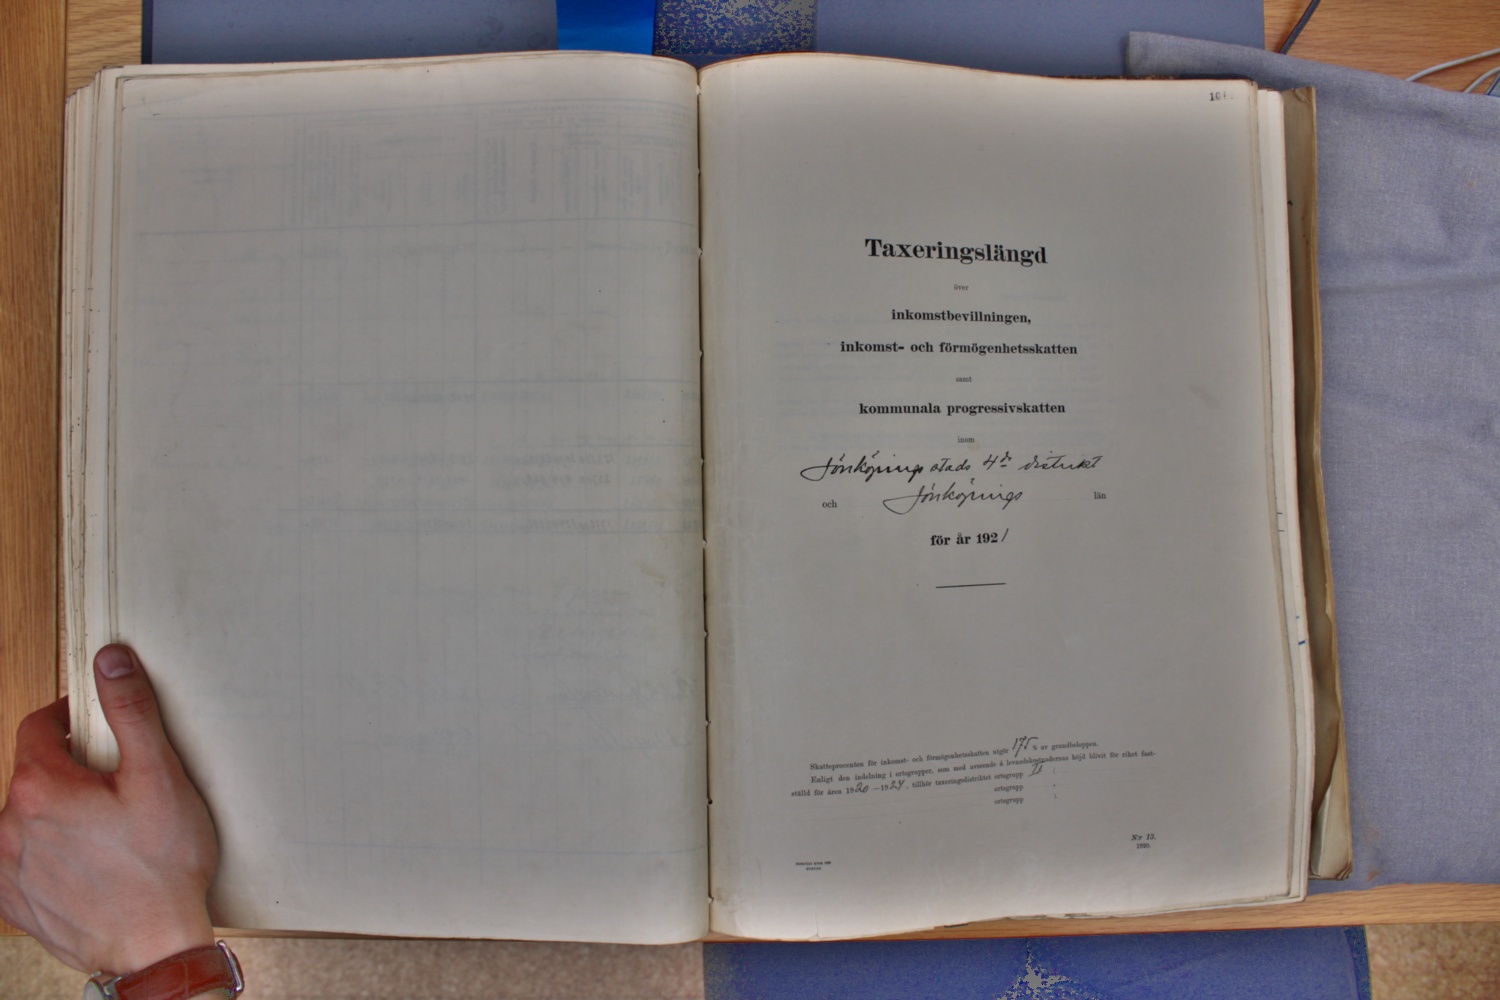 Taxeringslängd
över
inkomstbevillningen,
inkomst- och förmögenhetsskatten
samt
kommunala progressivskatten
inom
Jönköpings stads 4de distrikt
och Jönköpings län
för år 1921
Skatteprocenten för inkomst- och förmögenhetsskatten utgör 175 % av grundbeloppen.
Enligt den indelning i ortsgrupper, som med avseende å levnadskostnadernas höjd blivit för riket fast-
ställd för åren 1920—1924, tillhör taxeringsdistriktet ortsgrupp II
ortsgrupp
ortsgrupp
Nr 13.
1920.